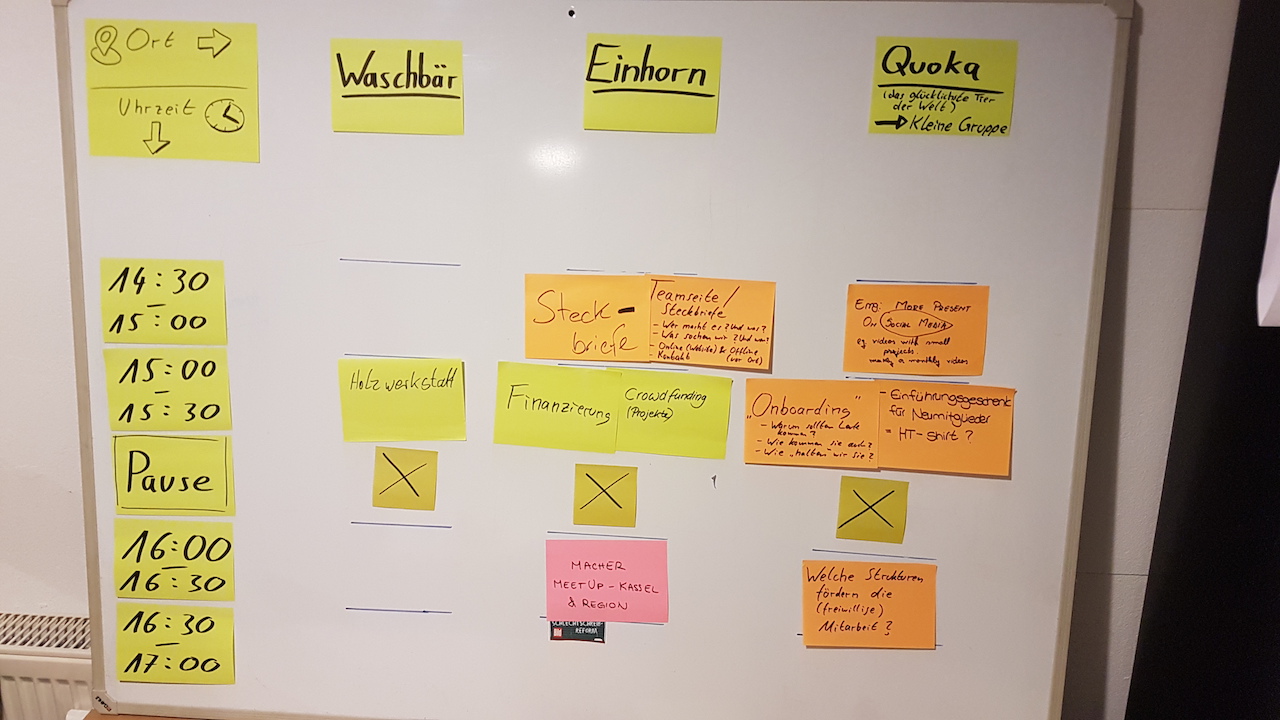 Ort
Uhrzeit
Waschbär
Einhorn
Quoka
(das glücklichste Tier
der Welt)
Kleine Gruppe
14:30
–
15:00
Steck-
briefe
Teamseite/
Steckbriefe
- Wer macht es? Und was?
- Was suchen wir? Und wen?
- Online (Website) & Offline
(vor Ort)
- Kontakt
MORE PRESENT
On SOCIAL MEDIA
eg videos with small
projects
making a monthly videos
15:00
–
15:30
Holzwerkstatt
Finanzierung
Crowdfunding
(Projekte)
„Onboarding"
- Warum sollten Leute
kommen?
- Wie kommen sie auch?
- Wie „halten" wir sie?
- Einführungsgeschenk
für Neumitglieder
= HT-Shirt?
Pause
16:00
–
16:30
MACHER
MEETUP - KASSEL
& REGION
SCHLECHTSCHREIB-
REFORM
Welche Strukturen
fördern die
(freiwillige)
Mitarbeit?
16:30
–
17:00